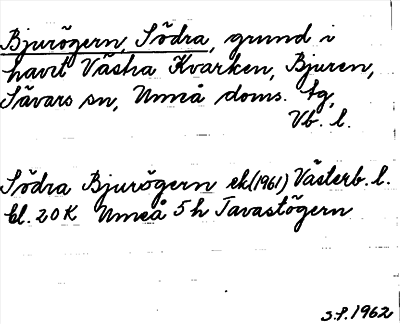 Bjurögern, Södra, grund i
havet Västra Kvarken, Bjuren,
Sävars sn, Umeå doms. tg,
Vb. l.
Södra Bjurögern ek(1961) Västerb. l.
bl. 20K Umeå 5h Tavastögern
S.f. 1962